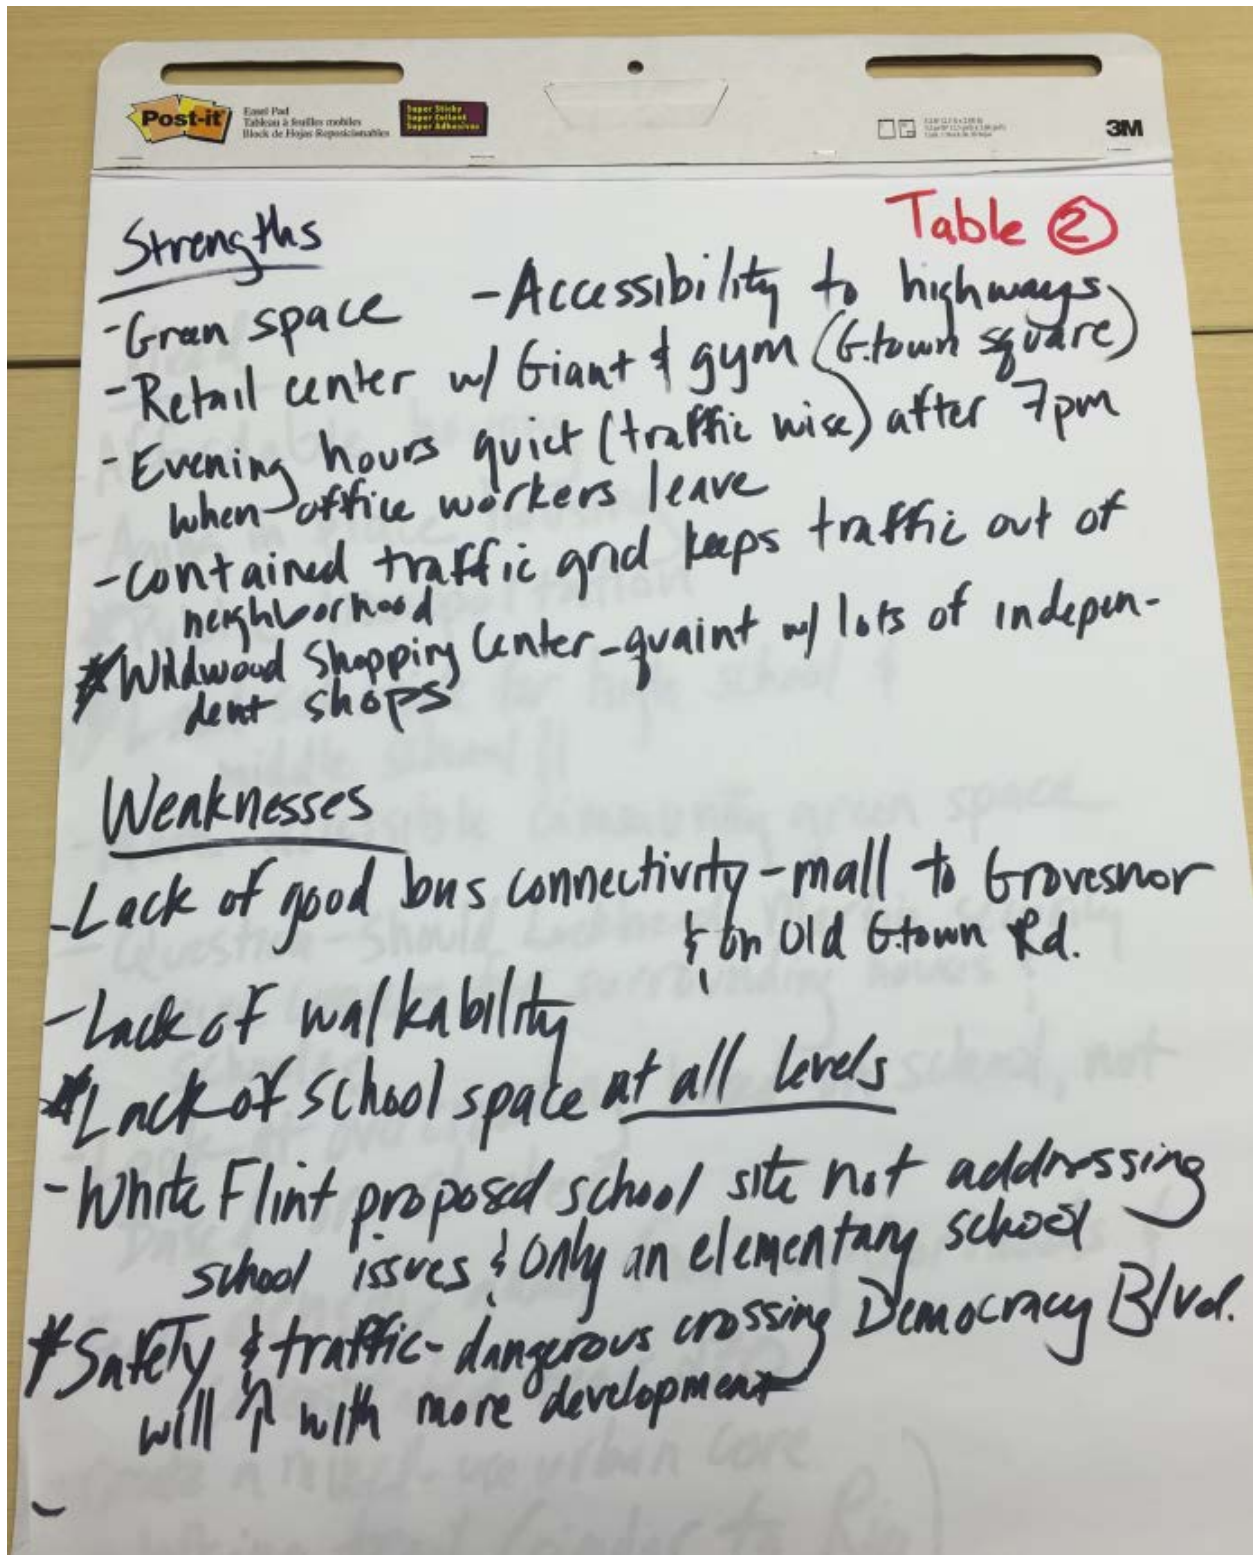 Post-it
Easel Pad
Tableau à feuilles mobiles
Block de Hojas Reposicionables
Super Sticky
Super Collant
Super Adhesivas
3M
Table ②
Strengths
- Green space - Accessibility to highways
- Retail center w/ Giant & gym (G.town square)
- Evening hours quiet (traffic wise) after 7pm
when office workers leave
- Contained traffic grid keeps traffic out of
neighborhood
* Wildwood Shopping Center - quaint w/ lots of indepen-
dent shops
Weaknesses
- Lack of good bus connectivity - mall to Grovesnor
& on Old G.town Rd.
- Lack of walkability
* Lack of school space at all levels
- White Flint proposed school site not addressing
school issues & only an elementary school
* Safety & traffic - dangerous crossing Democracy Blvd.
will ↑ with more development
-